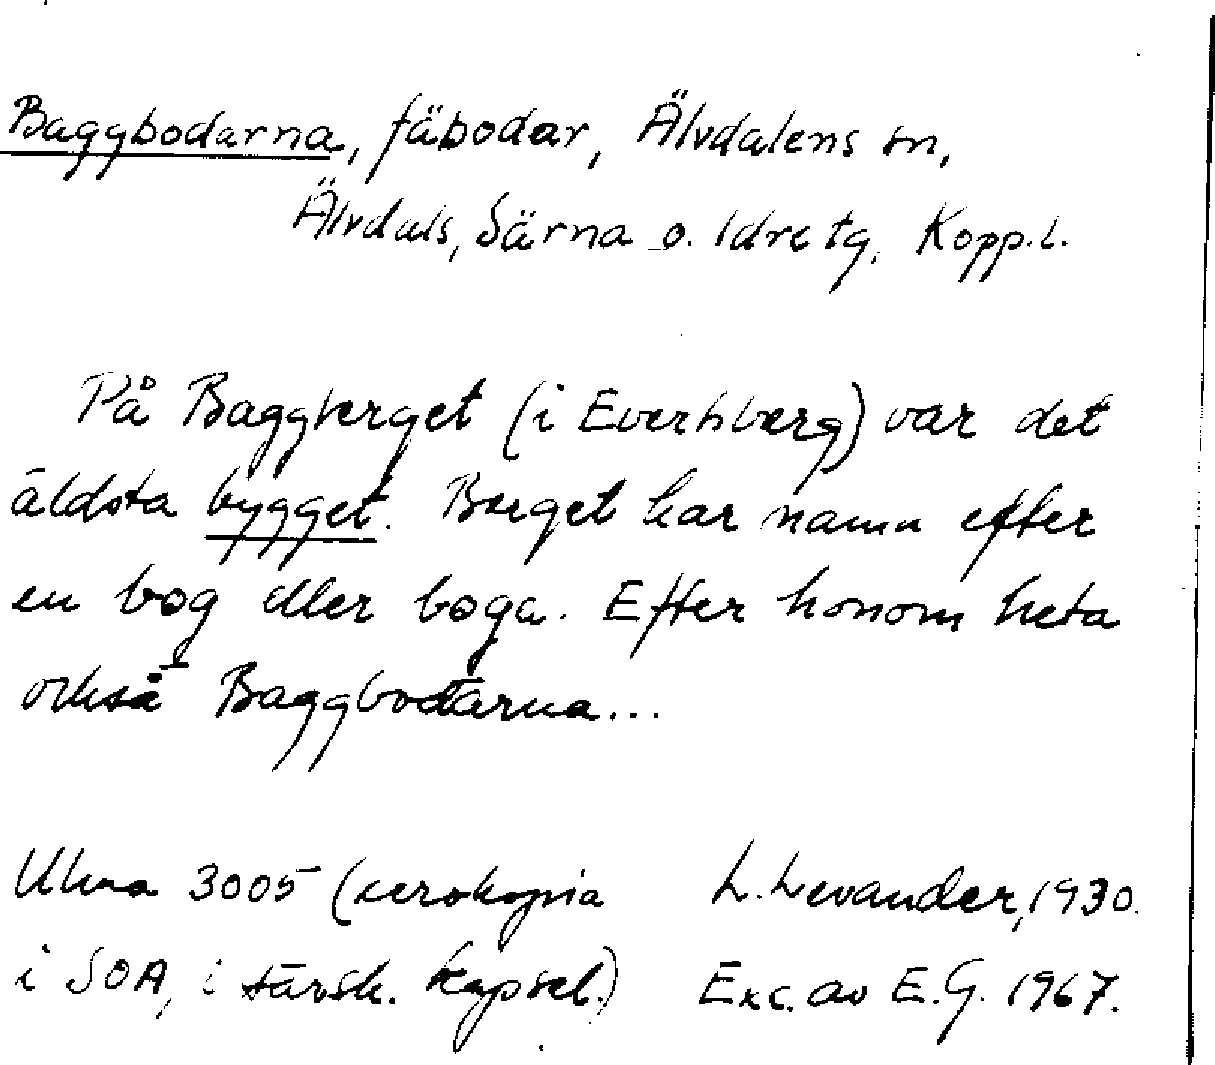 Baggbodarna, fäbodar, Älvdalens sn,
Älvdals, Särna o. Idre tg, Kopp. l.
På Baggberget (i Evertsberg) var det
äldsta bygget. Berget har namn efter
en bog eller boga. Efter honom heta
också Baggbodarna...
Ulma 3005 (xerokopia L. Levander, 1930.
i SOA, i särsk. kapsel.) Exc. av E.G. 1967.